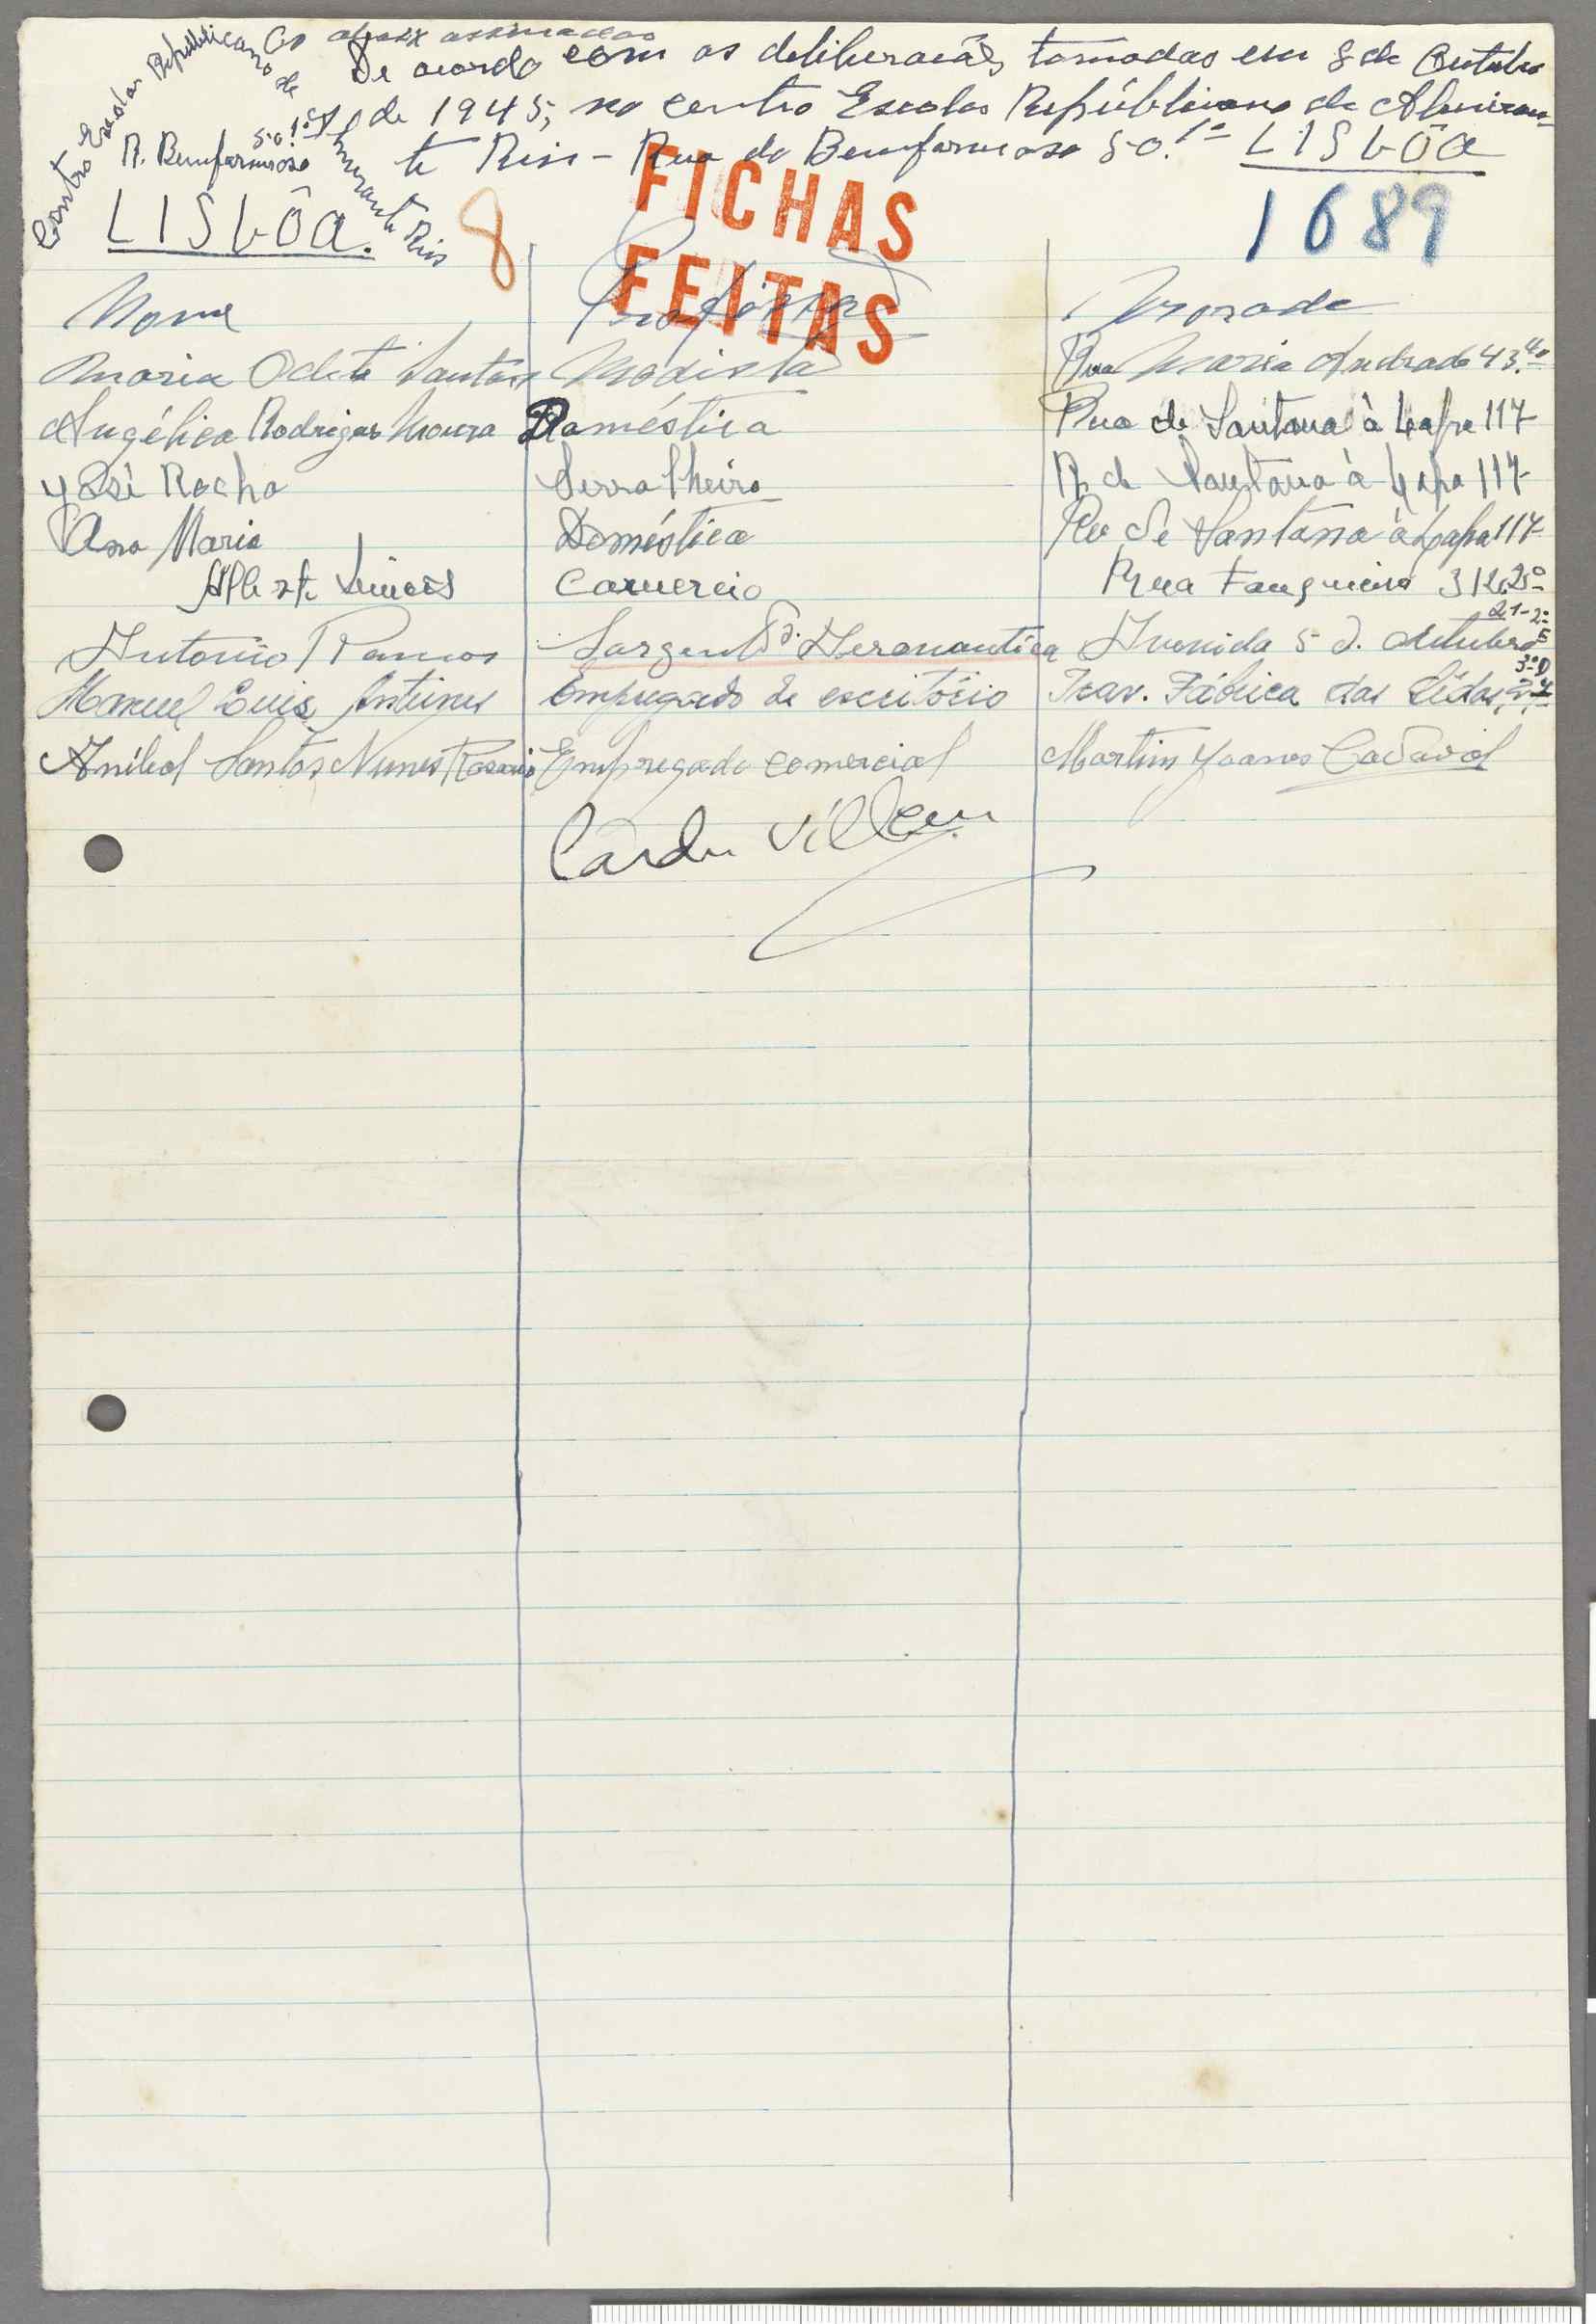 Os abaix assinados
De acordo com as deliberacões tomadas em 8 de Outubro
de 1945, no centro Escolar Repúblicano de Almiran-
te Reis - Rua do Bemformoso 50.1º LISBÔA
Centro Escolar Repúblicano de Almirante Reis
R. Bemformoso 50.1º
LISBÔA.
8
FICHAS
FEITAS
1689
Nome Profissão Morada
Maria Odete Santos Modista Rua Maria Andrade 43.4º
Angélica Rodrigues Moura Doméstica Rua de Santana à Lapa 117
José Rocha Serralheiro R. de Santana à Lapa 117
Ana Maria Doméstica Rua de Santana à Lapa 117
Alberto Simões Comercio Rua Fanqueiros 312.2º
Antonio Ramos Sargento Aeronautica Avenida 5 d. Outubro 21-2º E
Manuel Luis Antunes Empregado de escritório Trav. Fábrica das Sêdas, 3º D
Aníbal Santos Nunes Rosario Empregado comercial Martim Joanes Cadaval